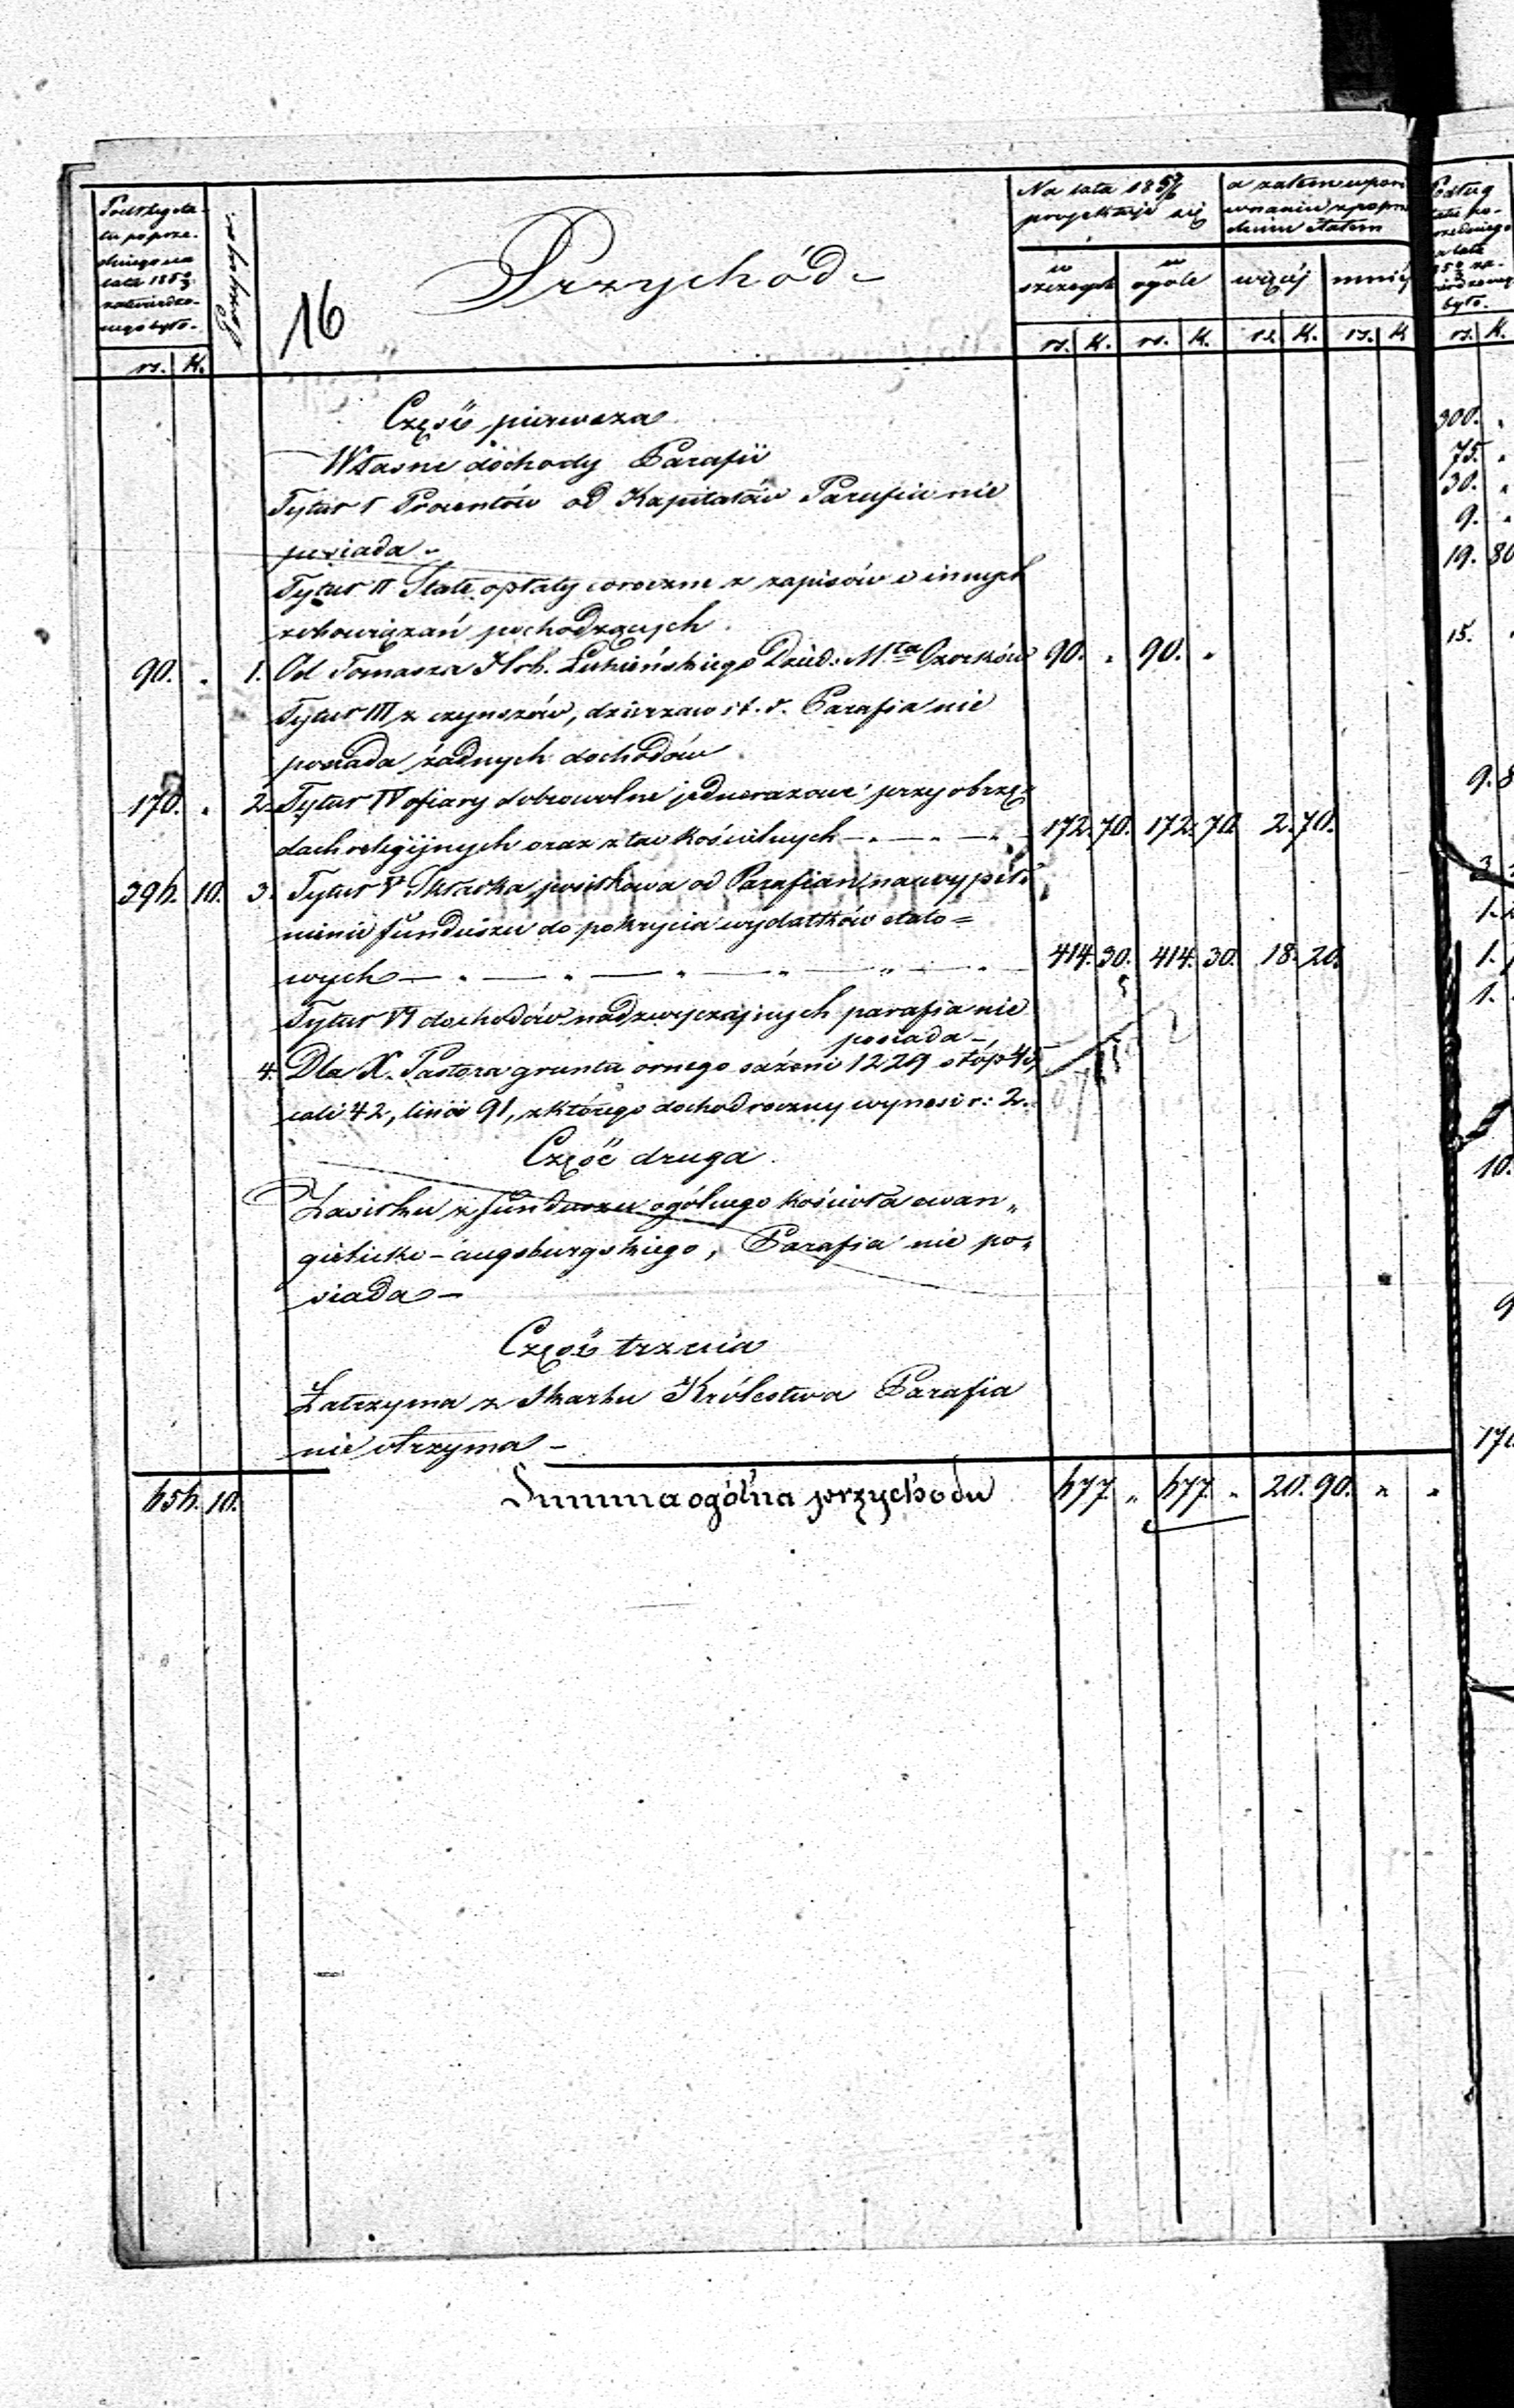 Podług eta-
tu poprze-
dniego na
lata 185
zatwierdzo-
nego było.
Pozycya.
16
Przychód
Na lata 185
projektuje się
w
szczegole
w
ogole
a zatem w poró
wnaniu z poprze
dnim etatem
więcéj
mniéj
rs. K.
rs. K. rs. K. rs. K. rs. K.
Część pierwsza
Własne dochody Parafii
Tytuł I Procentów od Kapitałów Parafia nie
posiada -
Tytuł II Stałe opłaty coroczne z zapisów i innych
zobowiązań pochodzących.
90. „ 1. Od Tomasza Hrb. Łubieńskiego Dzied: M.ta Ozorków 90. „ 90. „
Tytuł III z czynszów, dzierzaw i t. d. Parafia nie
posiada żadnych dochodów
170. „ 2. Tytuł IV ofiary dobrowolne jednorazowe przy obrzę-
dach religijnych oraz z tac kościelnych 172. 70. 172. 70. 2. 70.
396. 10. 3. Tytuł V Składka posiłkowa od Parafian na wypeł-
nienie funduszu do pokrycia wydatków etato=
wych 414. 30. 414. 30. 18. 20.
Tytuł VI dochodów nadzwyczajnych parafia nie
posiada -,
4. Dla X. Pastora gruntu ornego sążeni 1229 stóp
cali 42, linii 91, z którego dochod roczny wynosi r: 2.
Część druga.
Zasiłku z funduszu ogólnego kościoła ewan„
gielicko-augsburgskiego, Parafia nie po„
siada -
Część trzecia
z Skarbu Królestwa Parafia
nie otrzyma -
656. 10. Summa ogólna przychodu 677 „ 677 „ 20. 90. „ „
Podług
było.
rs. K.
300. „
75. „
30. „
9. „
19. 80
15.